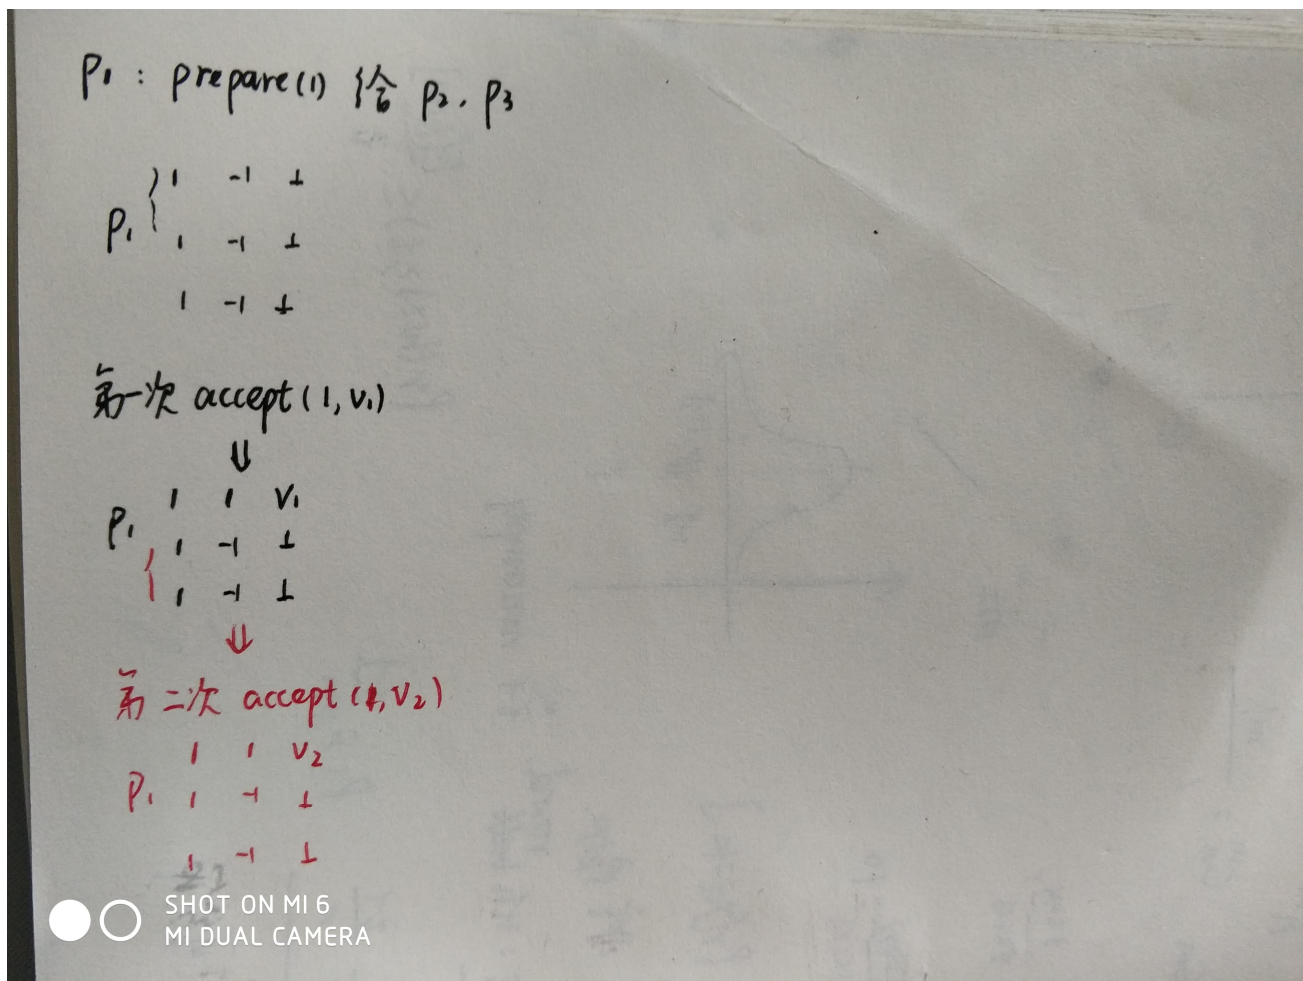 P1 : prepare(1) 给 P2. P3
1 -1 ⊥
P1 1 -1 ⊥
1 -1 ⊥
第一次 accept(1,v1)
⇓
1 1 V1
P1 1 -1 ⊥
1 -1 ⊥
⇓
第二次 accept(1,V2)
1 1 V2
P1 1 -1 ⊥
1 -1 ⊥
SHOT ON MI 6
MI DUAL CAMERA